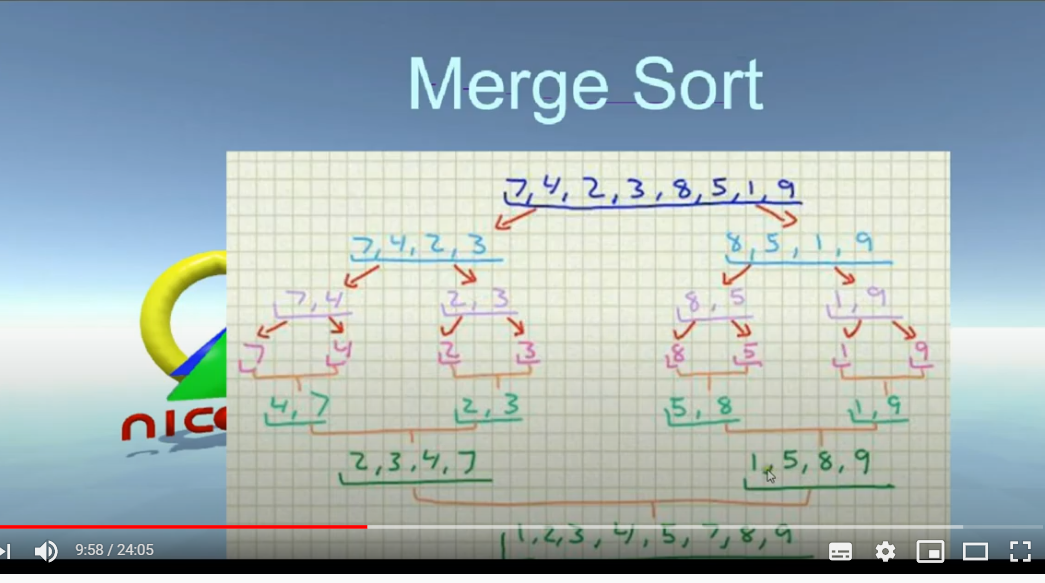 Merge Sort
7, 4, 2, 3, 8, 5, 1, 9
7, 4, 2, 3
8, 5, 1, 9
7, 4
2, 3
8, 5
1, 9
7
4
2
3
8
5
1
9
4, 7
2, 3
5, 8
1, 9
2, 3, 4, 7
1, 5, 8, 9
1, 2, 3, 4, 5, 7, 8, 9
9:58 / 24:05